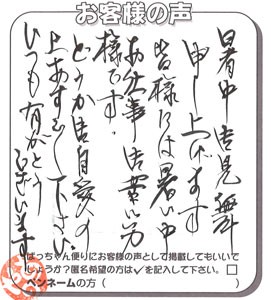 お客様の声
暑中御見舞
申し上げます
皆様には暑い中
お仕事御苦労
様です。
どうか御自愛の
上あすごし下さい。
いつも有がとう
ございます
ばっちゃん便りにお客様の声として掲載してもいいで
しょうか？匿名希望の方は✓を記入して下さい。□
ペンネームの方（　　　　）